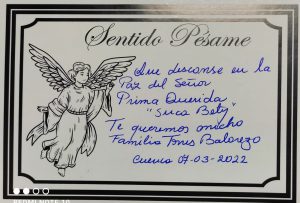 Sentido Pésame
Que descanse en la
Paz del Señor
Prima Querida
"Suca Bety"
Te queremos mucho
Familia Torres Balarezo
Cuenca 07-03-2022